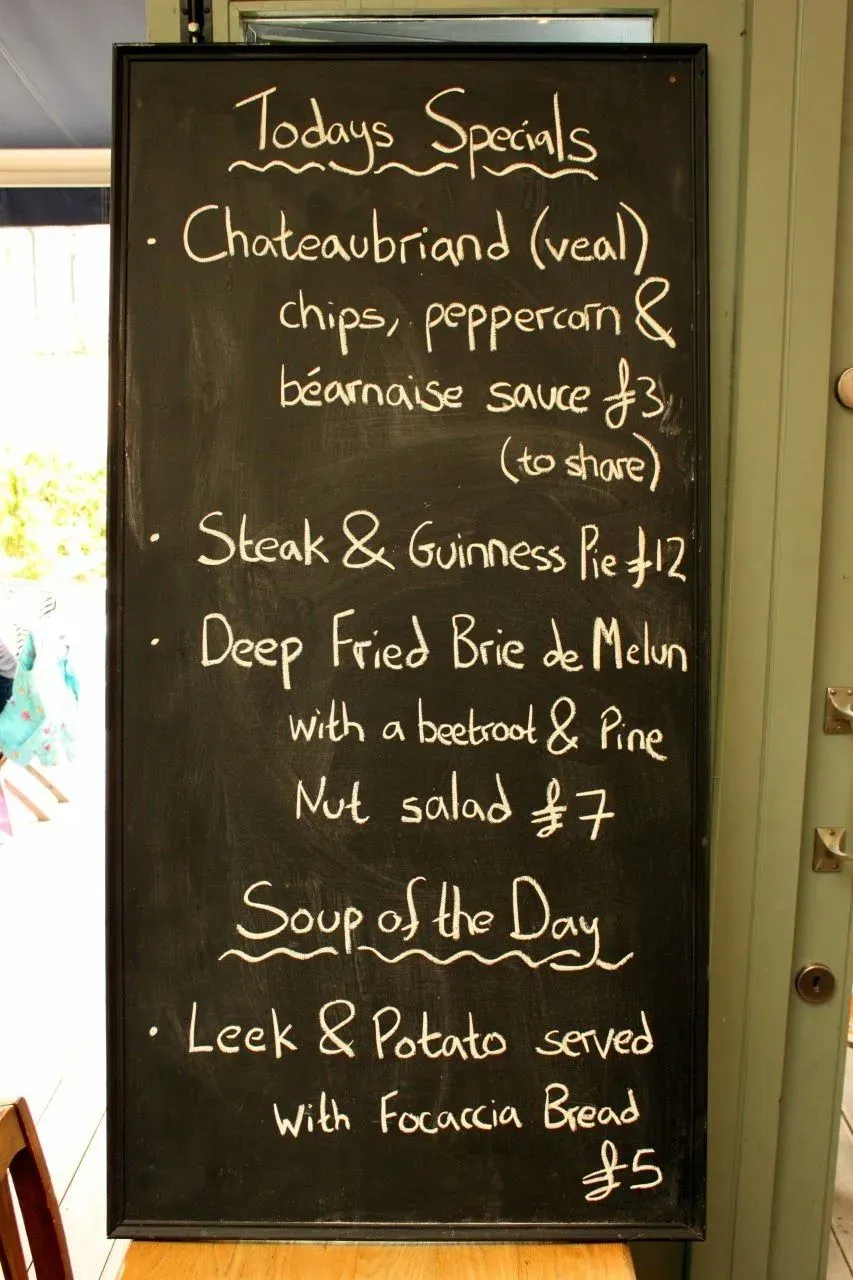 Todays Specials
· Chateaubriand (veal)
chips, peppercorn &
béarnaise sauce £3
(to share)
· Steak & Guinness Pie £12
· Deep Fried Brie de Melun
with a beetroot & Pine
Nut salad £7
Soup of the Day
· Leek & Potato served
with Focaccia Bread
£5